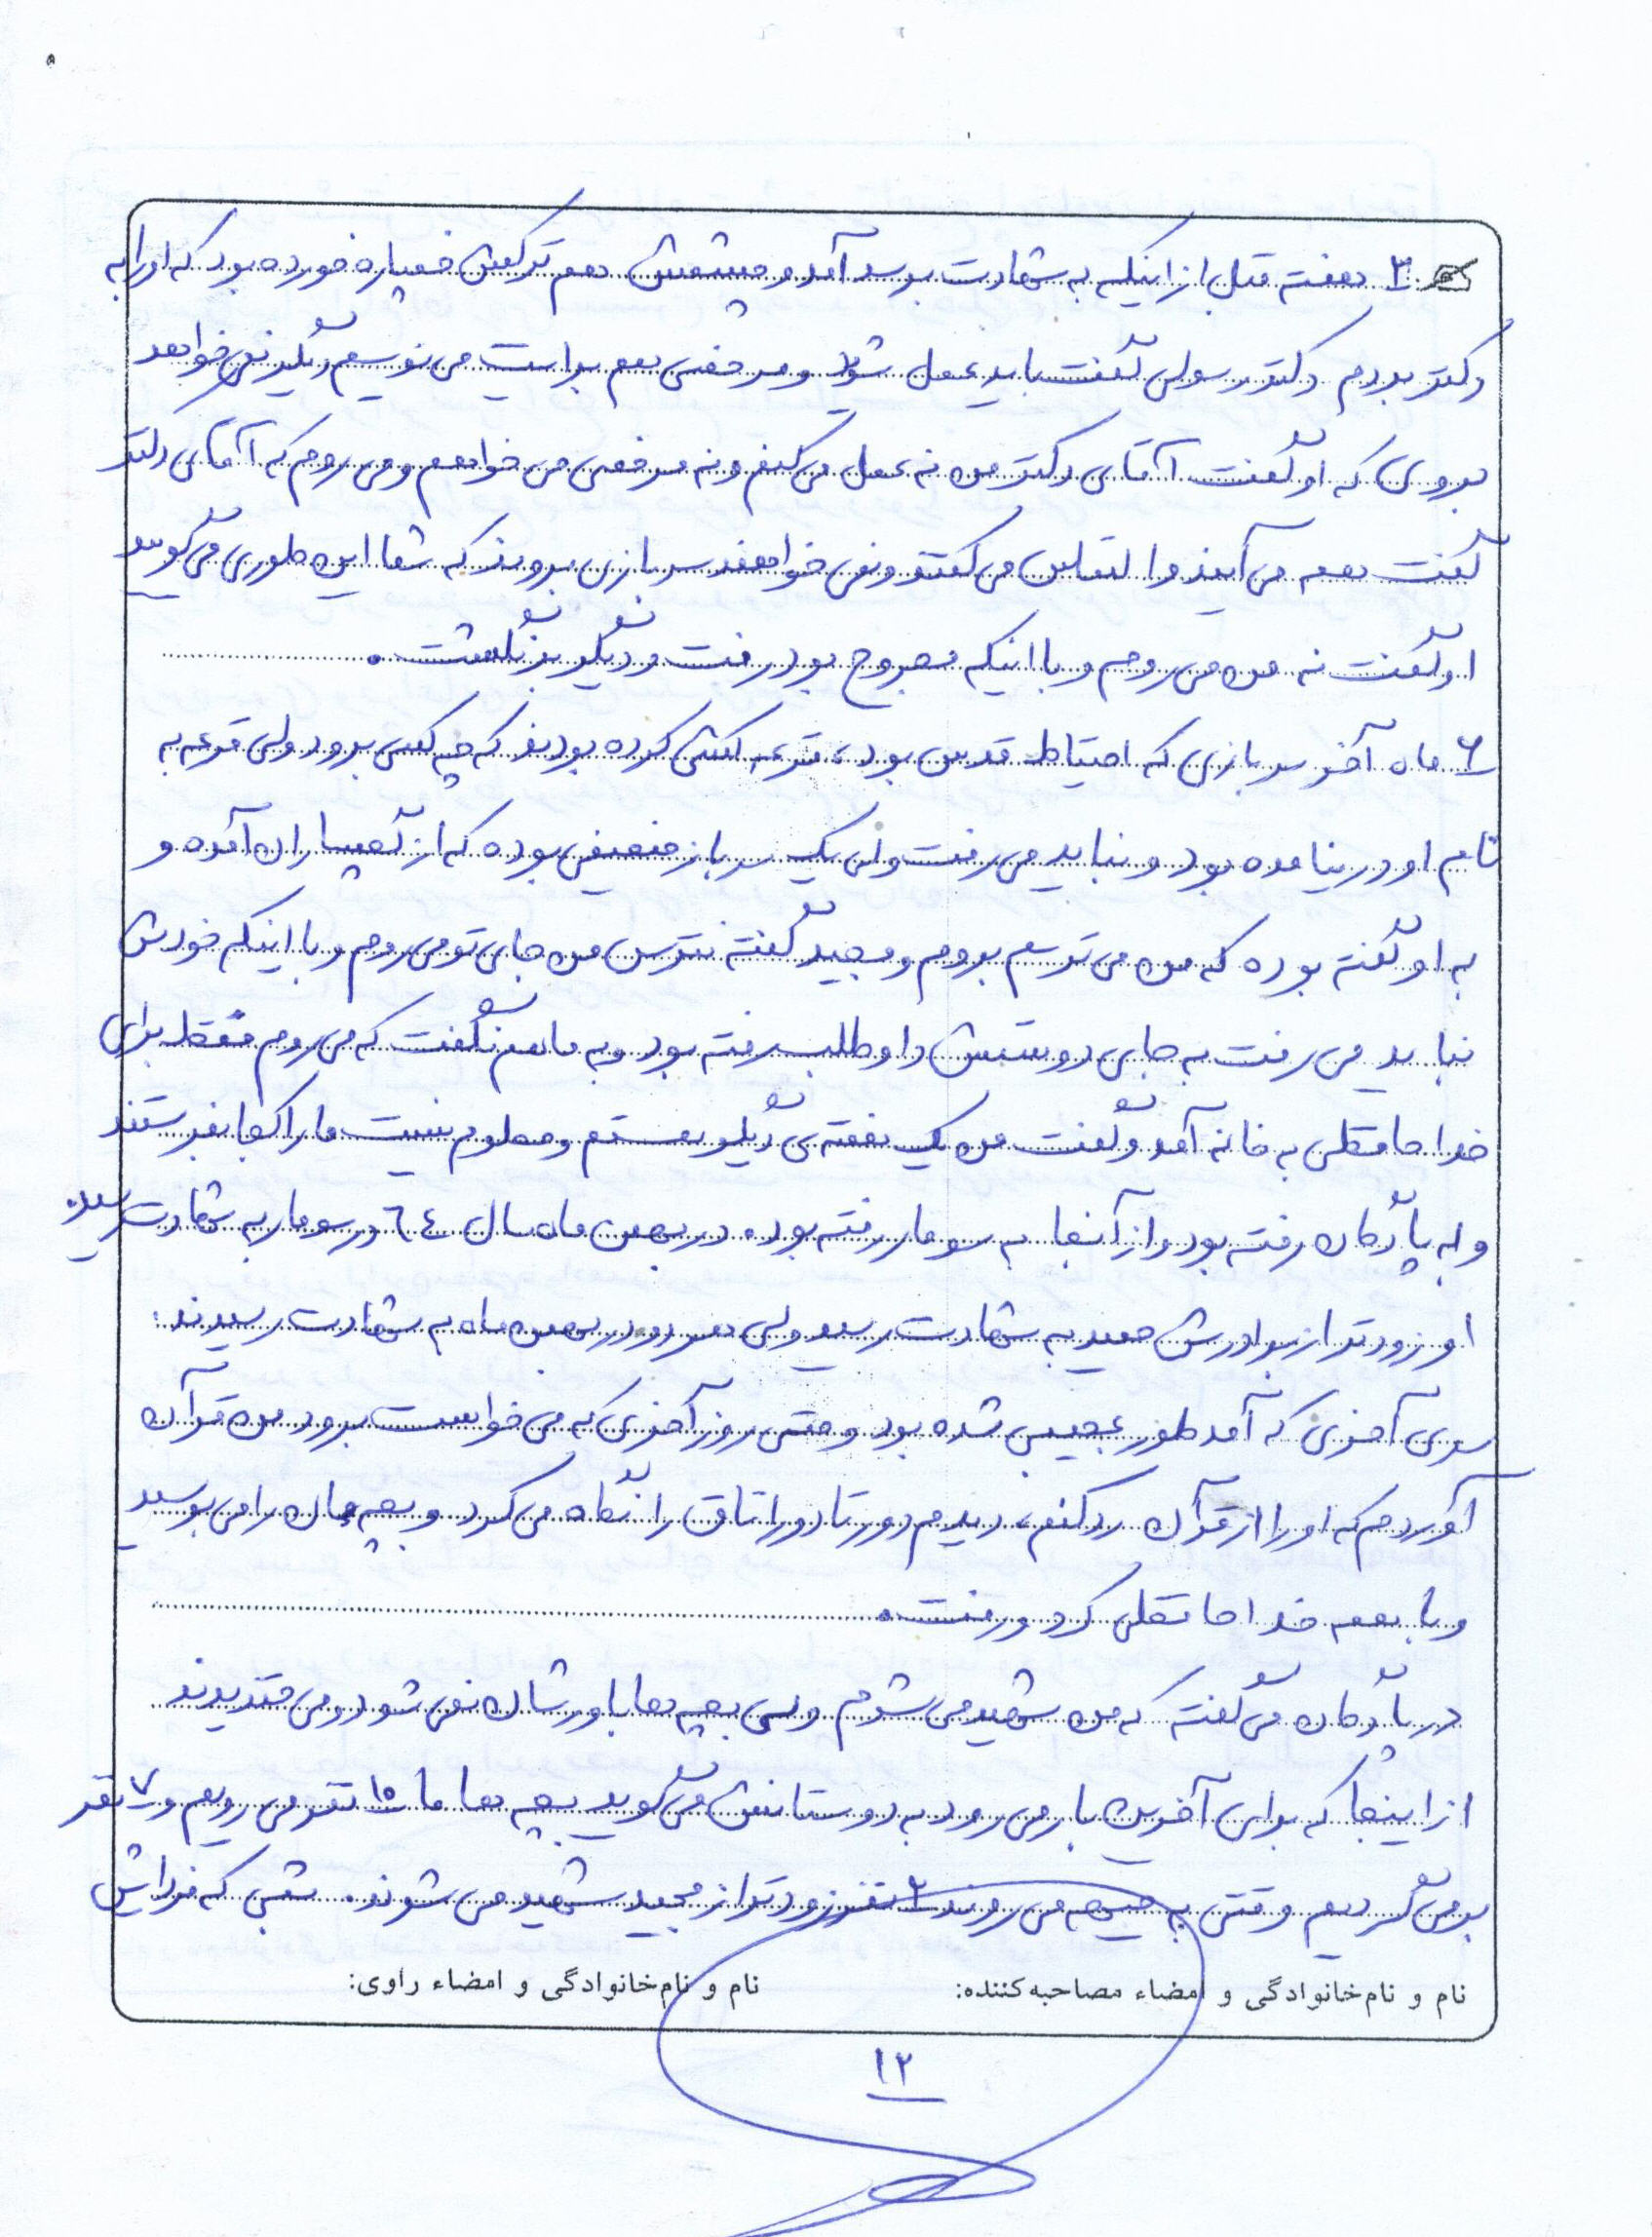 ۳ هفته قبل از اینکه به شهادت برسد آمد و چشمش هم ترکش خمپاره خورده بود که او را به
دکتر بردم دکتر رسولی گفت باید عمل شود و مرخصی هم برایت می نویسم دیگر نمی خواهد
بروی که او گفت آقای دکتر من نه عمل می کنم و نه مرخصی می خواهم و می روم که آقای دکتر
گفت همه می آیند و التماس می کنند و نمی خواهند سربازی بروند که شما این طوری می گویید
او گفت نه من می روم و با اینکه مجروح بود رفت و دیگر برنگشت .
۶ ماه آخر سربازی که احتیاط قدس بود، قرعه کشی کرده بودند که چه کسی برود ولی قرعه به
نام او در نیامده بود و نباید می رفت ولی یک سرباز ضعیفی بوده که از گچساران آمده و
به او گفته بوده که من می ترسم بروم و مجید گفته نترس من جای تو می روم و با اینکه خودش
نباید می رفت به جای دوستش داوطلب رفته بود و به ما هم نگفت که می روم فقط برای
خداحافظی به خانه آمد و گفت من یک هفته ی دیگر هستم و معلوم نیست ما را کجا بفرستند
و به پادگان رفته بود و از آنجا به سومار رفته بود. در بهمن ماه سال ٦٤ در سومار به شهادت رسید.
او زودتر از برادرش حمید به شهادت رسید ولی هر دو در بهمن ماه به شهادت رسیدند.
سری آخری که آمد طور عجیبی شده بود و حتی روز آخری که می خواست برود من قرآن
آوردم که او را از قرآن رد کنم، دیدم دور تا دور اتاق را نگاه می کرد و بچه مان را می بوسید
و با همه خداحافظی کرد و رفت.
در پادگان می گفته که من شهید می شوم ولی بچه ها باورشان نمی شود و می خندیدند
از اینجا که برای آخرین بار می رود به دوستانش می گوید بچه ها ما ۱۵ نفر می رویم و ۷ نفر
بر می گردیم وقتی به جبهه می روند ۲ نفر زودتر از مجید شهید می شوند. شبی که فردایش
نام و نام‌خانوادگی و امضاء مصاحبه‌کننده: نام و نام‌خانوادگی و امضاء راوی:
۱۲